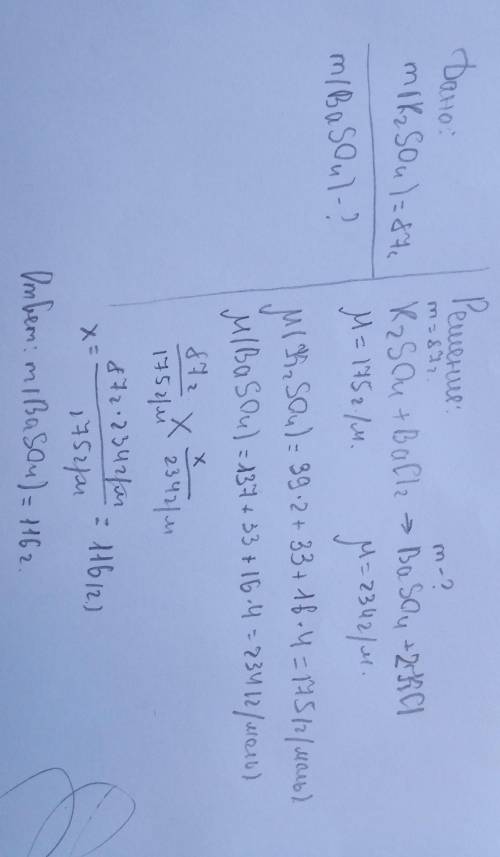 Дано:
m(K₂SO₄) = 87г
m(BaSO₄) - ?
Решение:
m=87г. m-?
K₂SO₄ + BaCl₂ → BaSO₄ + 2KCl
M=175г/м. M=234г/м.
M(K₂SO₄) = 39·2 + 33 + 16·4 = 175(г/моль)
M(BaSO₄) = 137 + 33 + 16·4 = 234(г/моль)
87г/175г/м X x/234г/м
x = 87г·234г/м / 175г/м = 116(г)
Ответ: m(BaSO₄) = 116г.